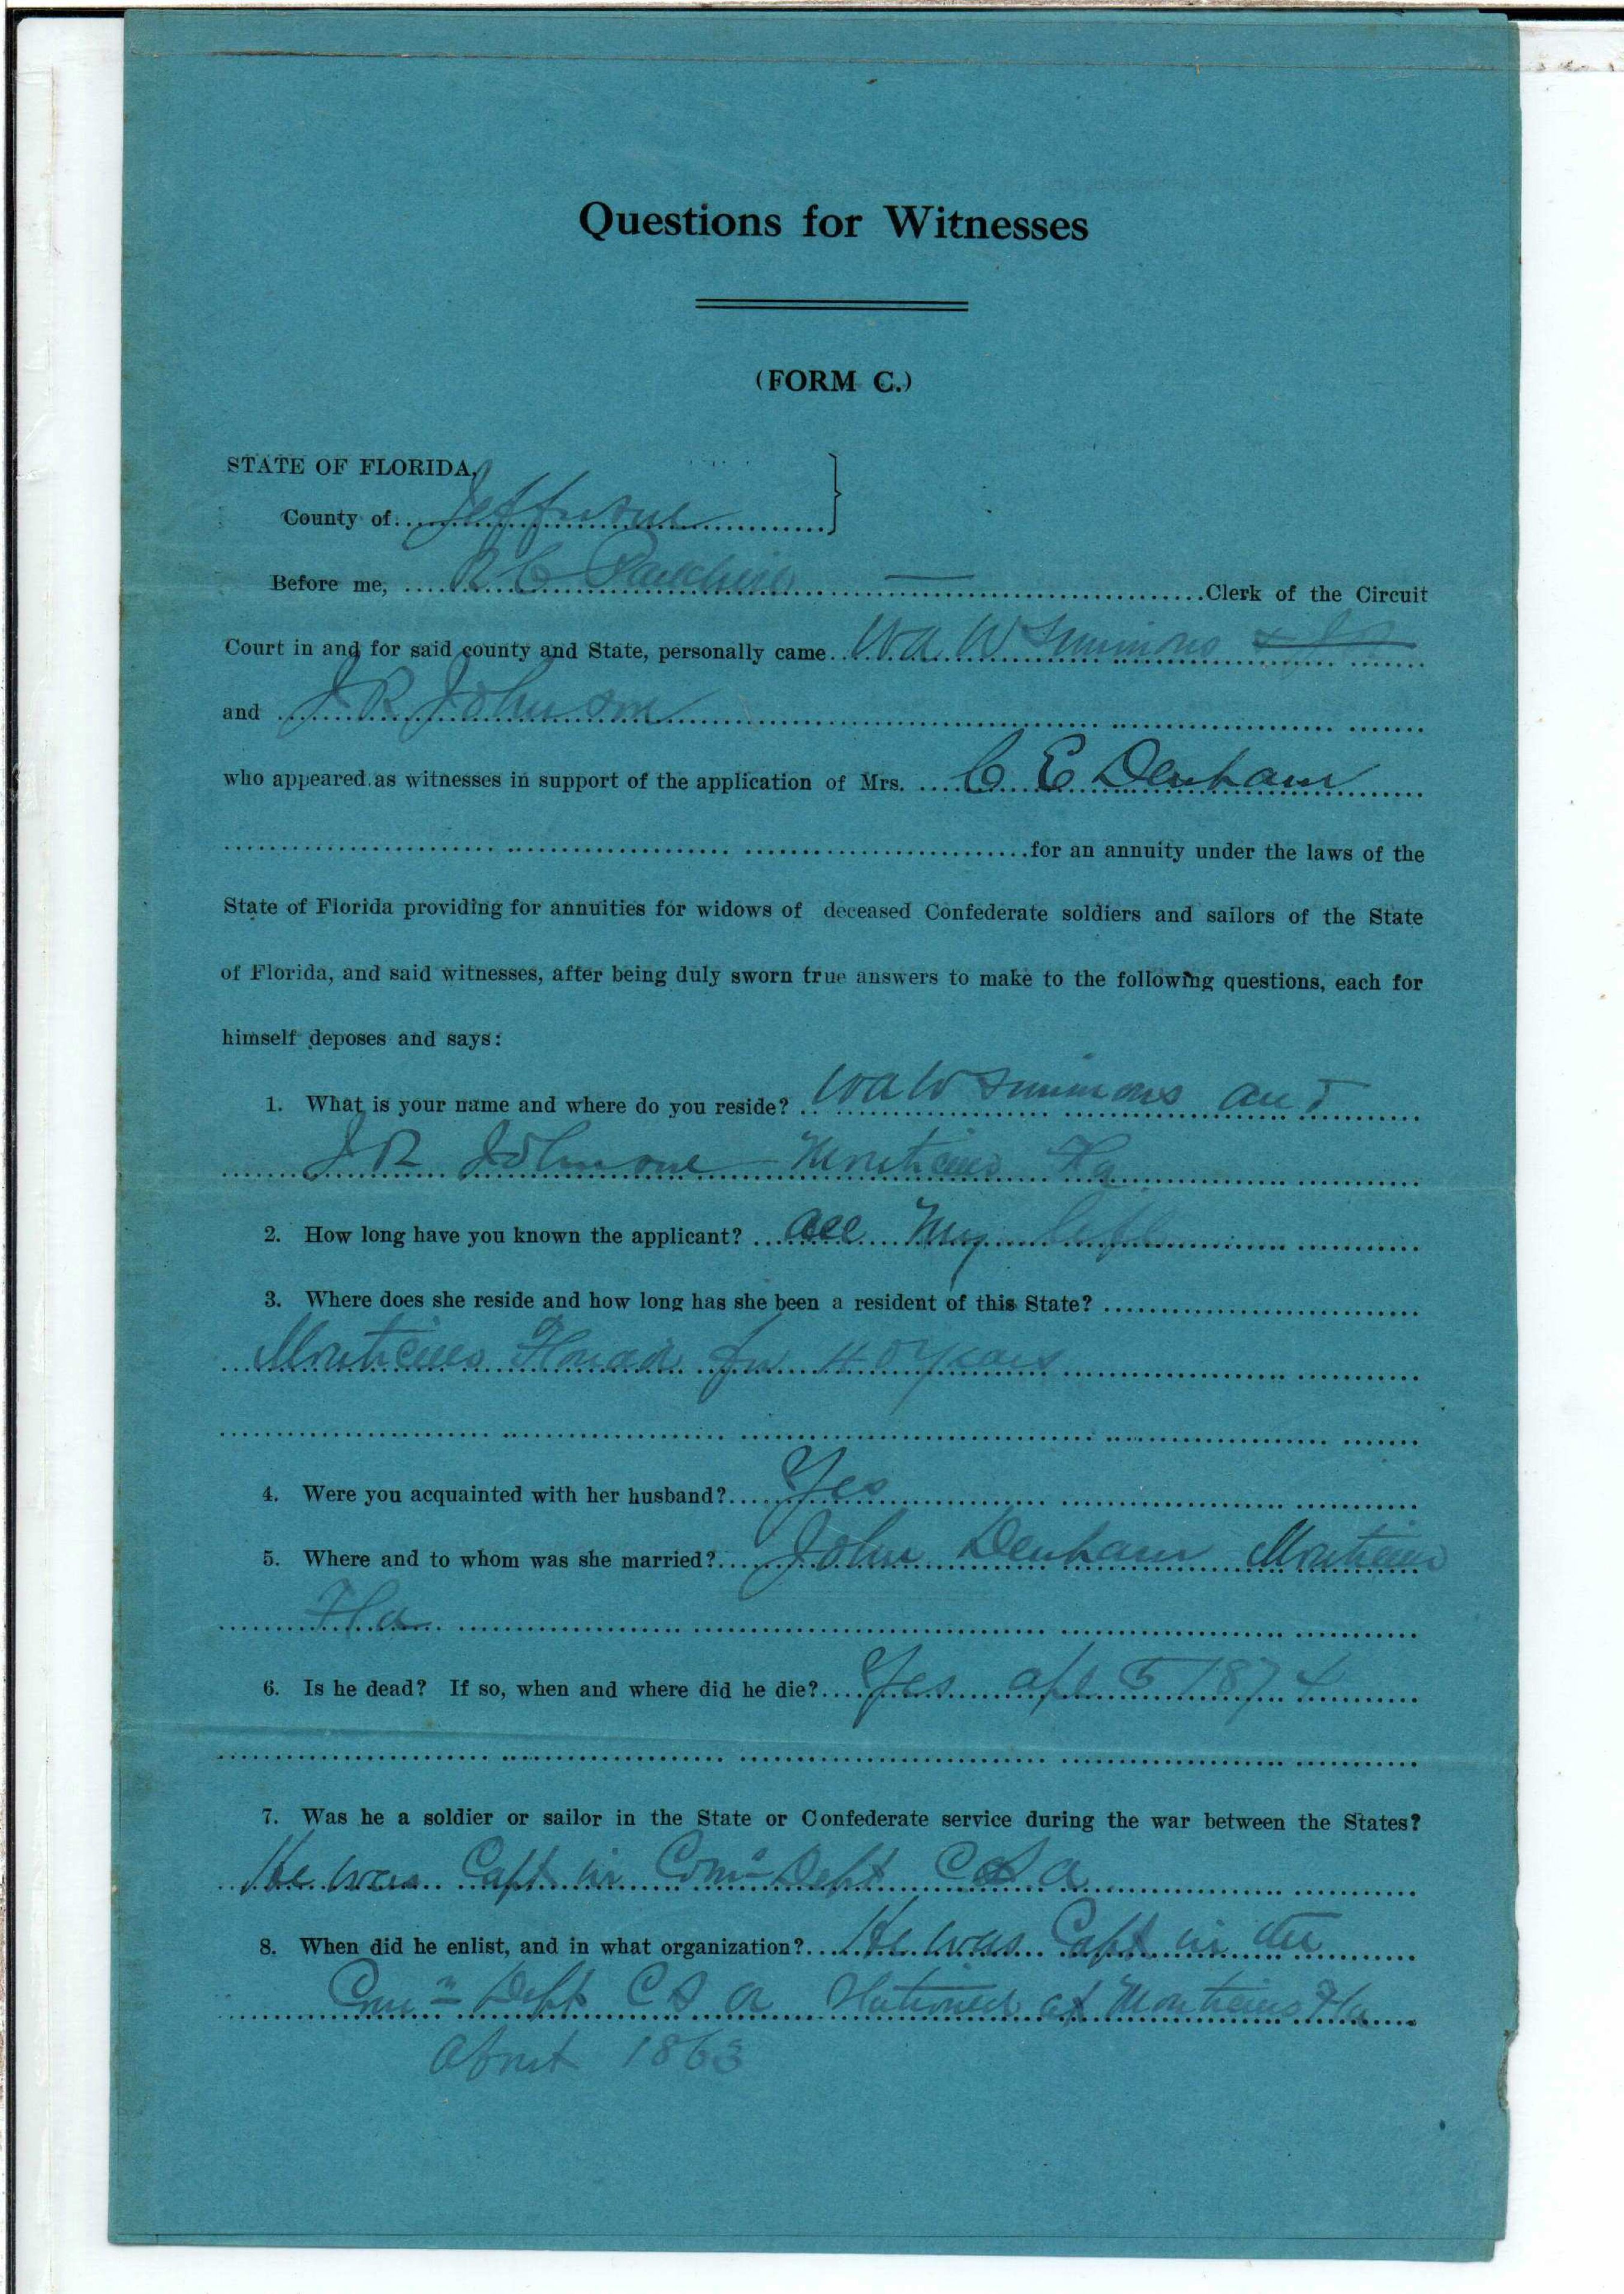 Questions for Witnesses
(FORM C.)
STATE OF FLORIDA,
County of Jefferson
Before me, R C Clerk of the Circuit
Court in and for said county and State, personally came W A W Simmons
and J R Johnson
who appeared as witnesses in support of the application of Mrs. C E Denham
for an annuity under the laws of the
State of Florida providing for annuities for widows of deceased Confederate soldiers and sailors of the State
of Florida, and said witnesses, after being duly sworn true answers to make to the following questions, each for
himself deposes and says:
1. What is your name and where do you reside? W A W Simmons and
J R Johnson - Monticello Fla
2. How long have you known the applicant? all my life
3. Where does she reside and how long has she been a resident of this State?
Monticello Florida for 40 years
4. Were you acquainted with her husband? Yes
5. Where and to whom was she married? John Denham Monticello
Fla
6. Is he dead? If so, when and where did he die? Yes apl 5 1874
7. Was he a soldier or sailor in the State or Confederate service during the war between the States?
He was Capt in Com Dept C S A
8. When did he enlist, and in what organization? He was Capt in the
Com Dept C S A Stationed at Monticello Fla
about 1863